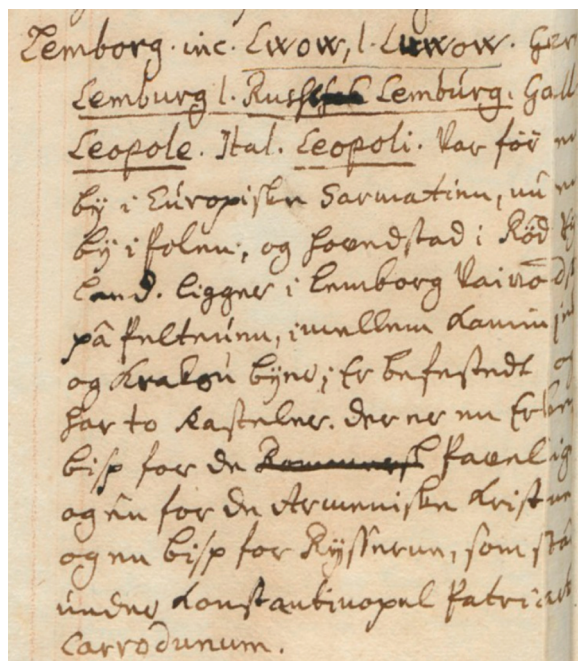 Lemborg. inc. Lwow, l. Luwow. Ger
Lemburg l. Russ Lembúrg. Gall
Leopole. Ital. Leopoli. Var før
bÿ i Európisken Sarmatien, nú
bÿ i Polen, og hovedstad i Rød
land. ligger i Lemborg
på Pelteúen, imellem Kamin
og Krakoú bÿer; Er befestedt og
har to Kasteler. der er en Er
bisp for de Pavelig
og én for de Armeniske Krist
og en bisp for Rÿsserne, som stå
únder Konstantinopel Patriark
Carrodunum.